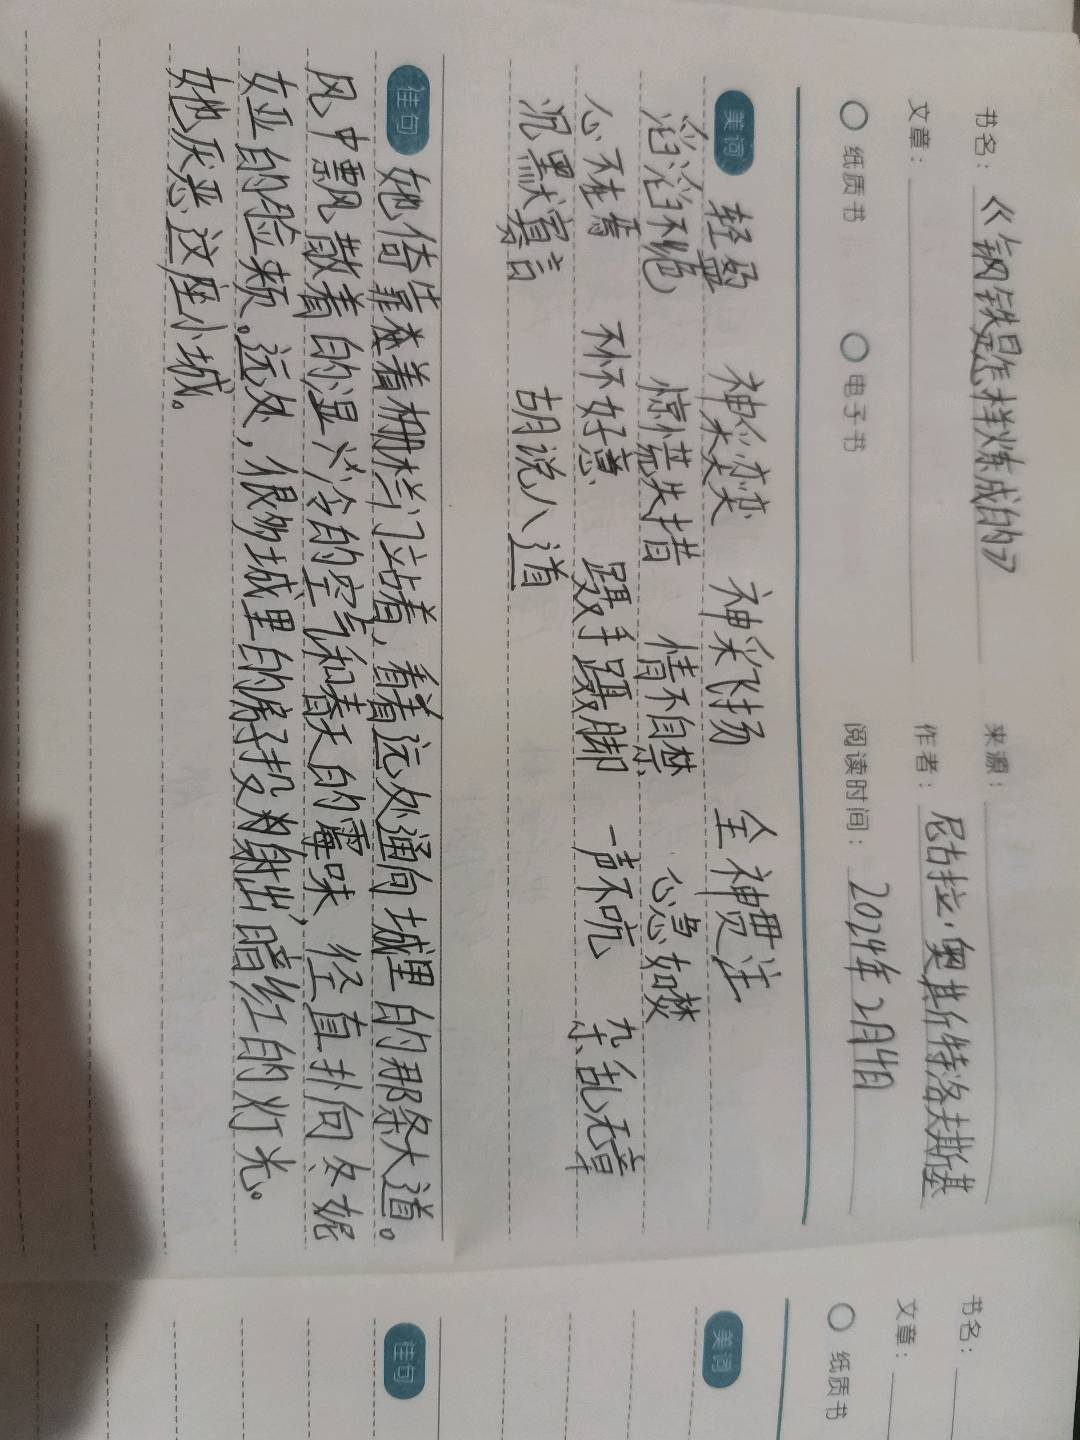 书名：《钢铁是怎样炼成的》 来源：
文章： 作者：尼古拉·奥斯特洛夫斯基
纸质书 电子书 阅读时间：2024年2月4日
美词 轻盈 神态突变 神采飞扬 全神贯注
滔滔不绝 惊慌失措 情不自禁 心急如焚
心不在焉 不怀好意 蹑手蹑脚 一声不吭 杂乱无章
沉默寡言 胡说八道
佳句 她倚靠在着栅栏门站着，看着远处通向城里的那条大道。
风中飘散着的湿冷的空气和春天的霉味 径直扑向冬妮
娅的脸颊。远处，很多城里的房子投射出暗红的灯光。
她厌恶这座小城。
书名：
文章：
纸质书
美词
佳句